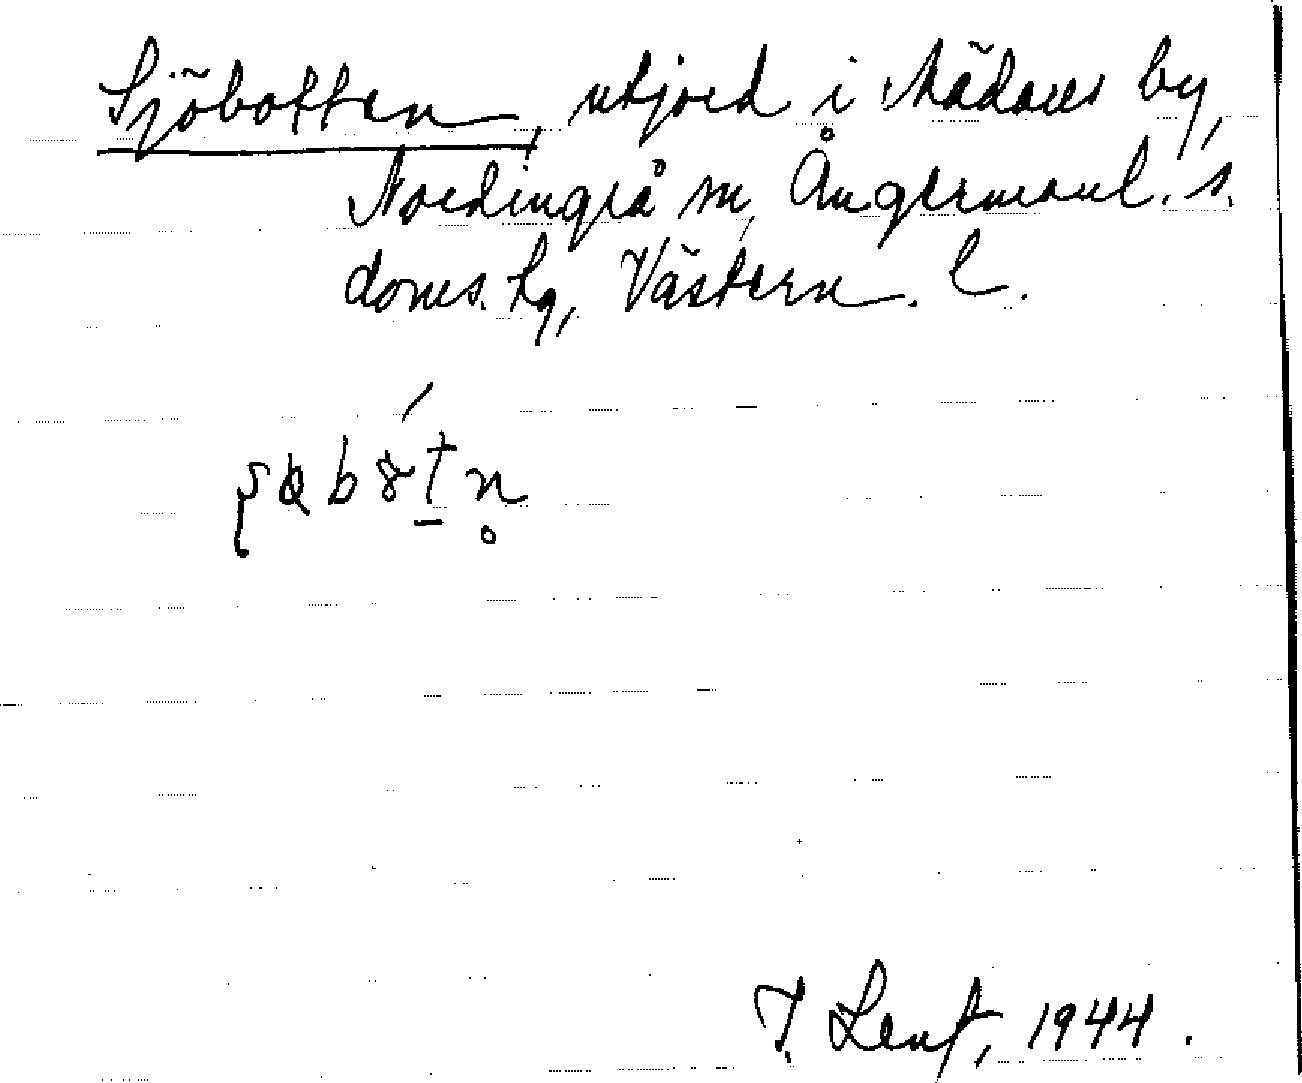 Sjöbotten, utjord i Mädans by,
Nordingrå sn, Ångermanl. s.
doms. hg, Västern. l.
T. Lenf, 1944.